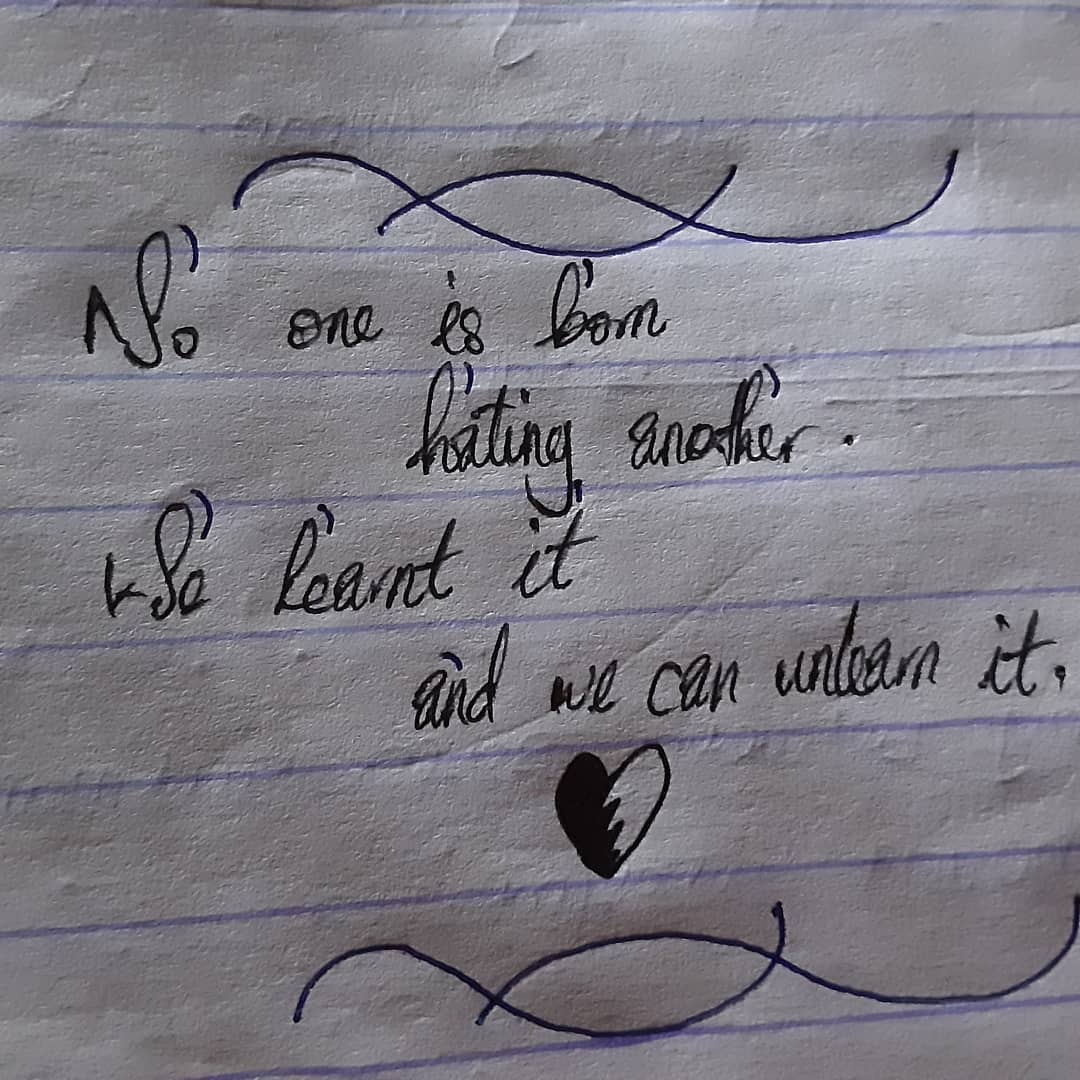 No one is born
hating another.
We learnt it
and we can unlearn it.